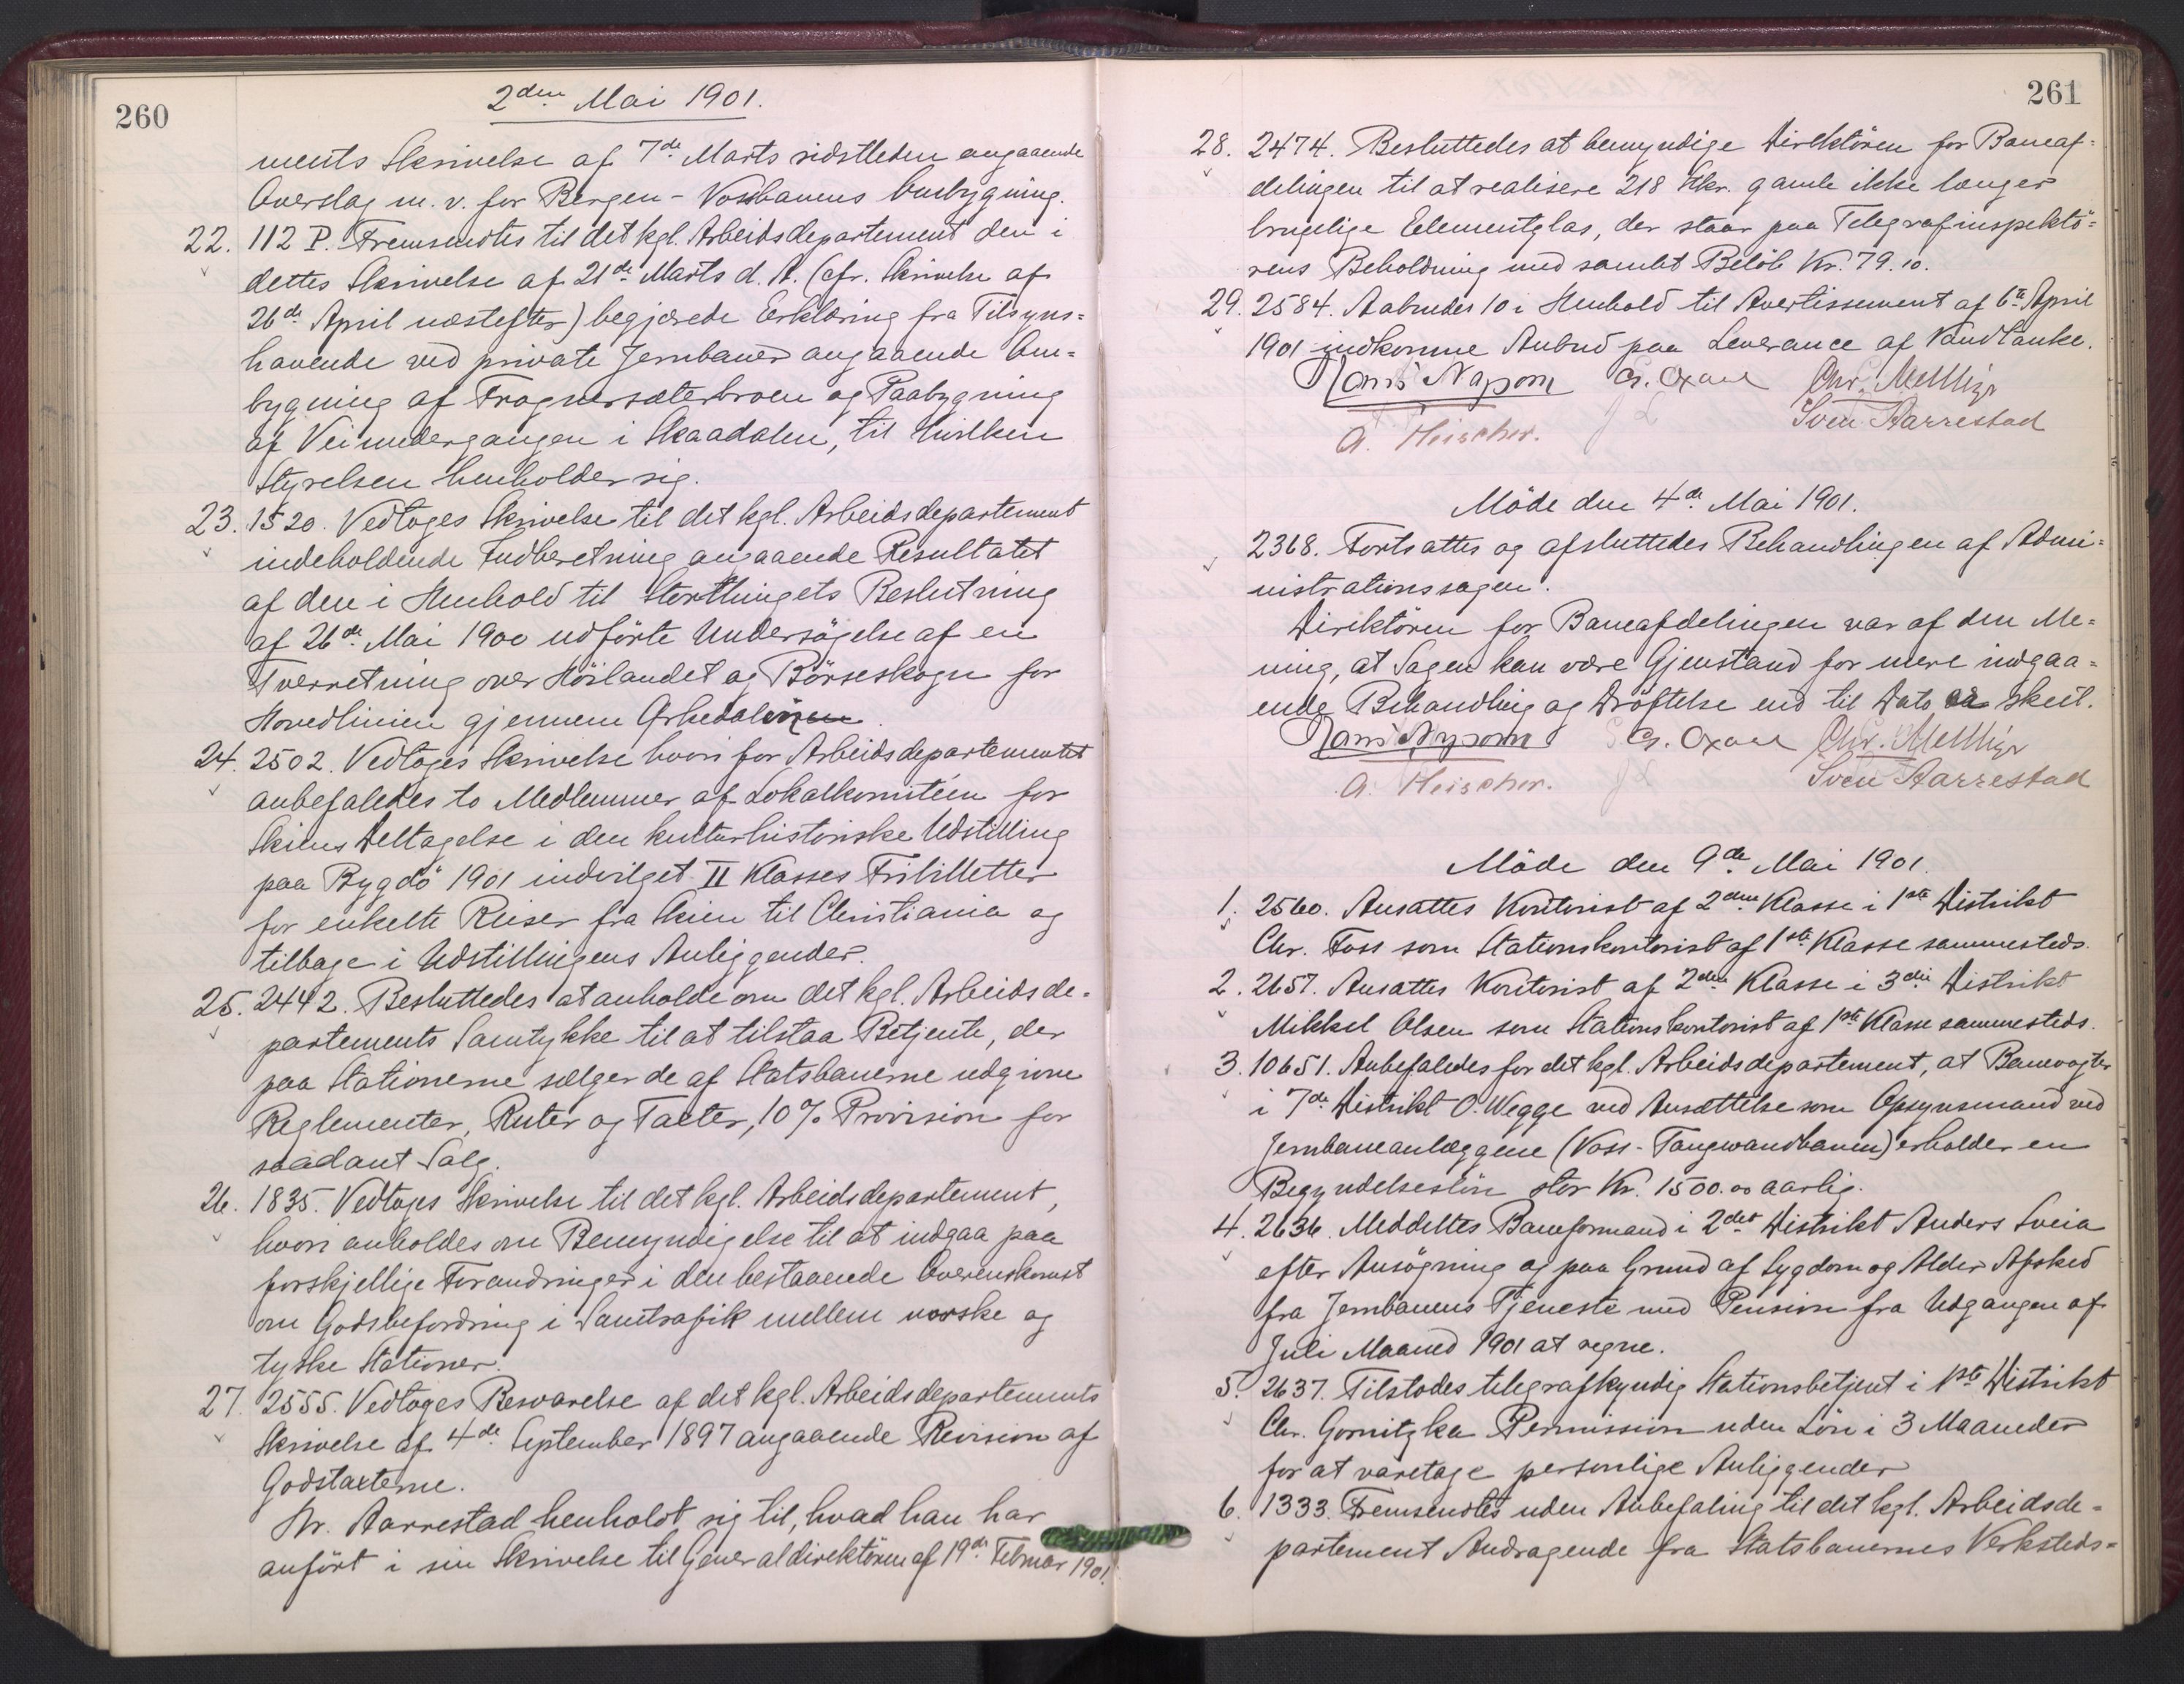 260
2den Mai 1901.
ments Skrivelse af 7de Marts sidstleden angaaende
Overslag m. v. for Bergen - Vossbanens Ombygning.
22. 112 P. Fremsendtes til det kgl. Arbeidsdepartement den i
dettes Skrivelse af 21de Marts d. A. (cfr. Skrivelse af
26de April næstefter) begjærede Erklæring fra Tilsyns=
havende ved private Jernbaner angaaende Om=
bygning af Frognersæterbroen og Paabygning
af Veiundergangen i Skaadalen, til hvilken
Styrelsen henholder sig.
23. 1520. Vedtoges Skrivelse til det kgl. Arbeidsdepartement
indeholdende Indberetning angaaende Resultatet
af den i Henhold til Storthingets Beslutning
af 26de Mai 1900 udförte Undersögelse af en
Tverretning over Höilandet og Börseskogn for
Hovedlinien gjennem Orkedalen.
24. 2502. Vedtoges Skrivelse hvori for Arbeidsdepartementet
anbefaledes to Medlemmer af Lokalkomitéen for
Skiens Deltagelse i den kulturhistoriske Udstilling
paa Bygdö 1901 indvilget II Klasses Fribilletter
for enkelte Reiser fra Skien til Christiania og
tilbage i Udstillingens Anliggender.
25. 2442. Besluttedes at anholde om det kgl. Arbeidsde=
partements Samtykke til at tilstaa Betjente, der
paa Stationerne sælger de af Statsbanerne udgivne
Reglementer, Ruter og Taxter, 10% Provision for
saadant Salg.
26. 1835. Vedtoges Skrivelse til det kgl. Arbeidsdepartement,
hvori anholdes om Bemyndigelse til at indgaa paa
forskjellige Forandringer i den bestaaende Overenskomst
om Godsbefordring i Samtrafik mellem norske og
tyske Stationer.
27. 2555. Vedtoges Besvarelse af det kgl. Arbeidsdepartements
Skrivelse af 4de September 1897 angaaende Revision af
Godstaxterne.
Hr. Aarrestad henholdt sig til, hvad han har
anfört i sin Skrivelse til Generaldirektören af 19de Februar 1901.
261
28. 2474. Besluttedes at bemyndige Direktören for Baneaf=
delingen til at realisere 218 Stkr. gamle ikke længer
brugelige Elementglas, der staar paa Telegrafinspektö=
rens Beholdning med samlet Belöb Kr. 79.10.
29. 2584. Aabnedes 10 i Henhold til Avertissement af 6te April
1901 indkomne Anbud paa Leverance af Vandtanke.
Hans Nysom G. Oxaal Chr.
A. Fleischer. Sven Aarrestad
Möde den 4de Mai 1901.
2368. Fortsattes og afsluttedes Behandlingen af Admi=
nistrationssagen.
Direktören for Baneafdelingen var af den Me=
ning, at Sagen kan være Gjenstand for mere indgaa=
ende Behandling og Dröftelse end til Dato er skeet.
Hans Nysom G. Oxaal Chr.
A. Fleischer. Sven Aarrestad
Möde den 9de Mai 1901.
1. 2560. Ansattes Kontorist af 2den Klasse i 1ste Distrikt
Chr. Foss som Stationskontorist af 1ste Klasse sammesteds.
2. 2657. Ansattes Kontorist af 2den Klasse i 3die Distrikt
Mikkel Olsen som Stationskontorist af 1ste Klasse sammesteds.
3. 10651. Anbefaledes for det kgl. Arbeidsdepartement, at Banevogter
i 7de Distrikt O. Wegge ved Ansættelse som Opsynsmand ved
Jernbaneanlæggene (Voss - Taugevandbanen) erholder en
Begyndelseslön stor Kr. 1500.00 aarlig.
4. 2636. Meddeltes Baneformand i 2det Distrikt Anders Sveia
efter Ansögning og paa Grund af Sygdom og Alder Afsked
fra Jernbanens Tjeneste med Pension fra Udgangen af
Juli Maaned 1901 at regne.
5. 2637. Tilstodes telegrafkyndig Stationsbetjent i 1ste Distrikt
Chr. Gornitzka Permission uden Lön i 3 Maaneder
for at varetage personlige Anliggender
6. 1333. Fremsendtes uden Anbefaling til det kgl. Arbeidsde=
partement Andragende fra Statsbanernes Verksteds=